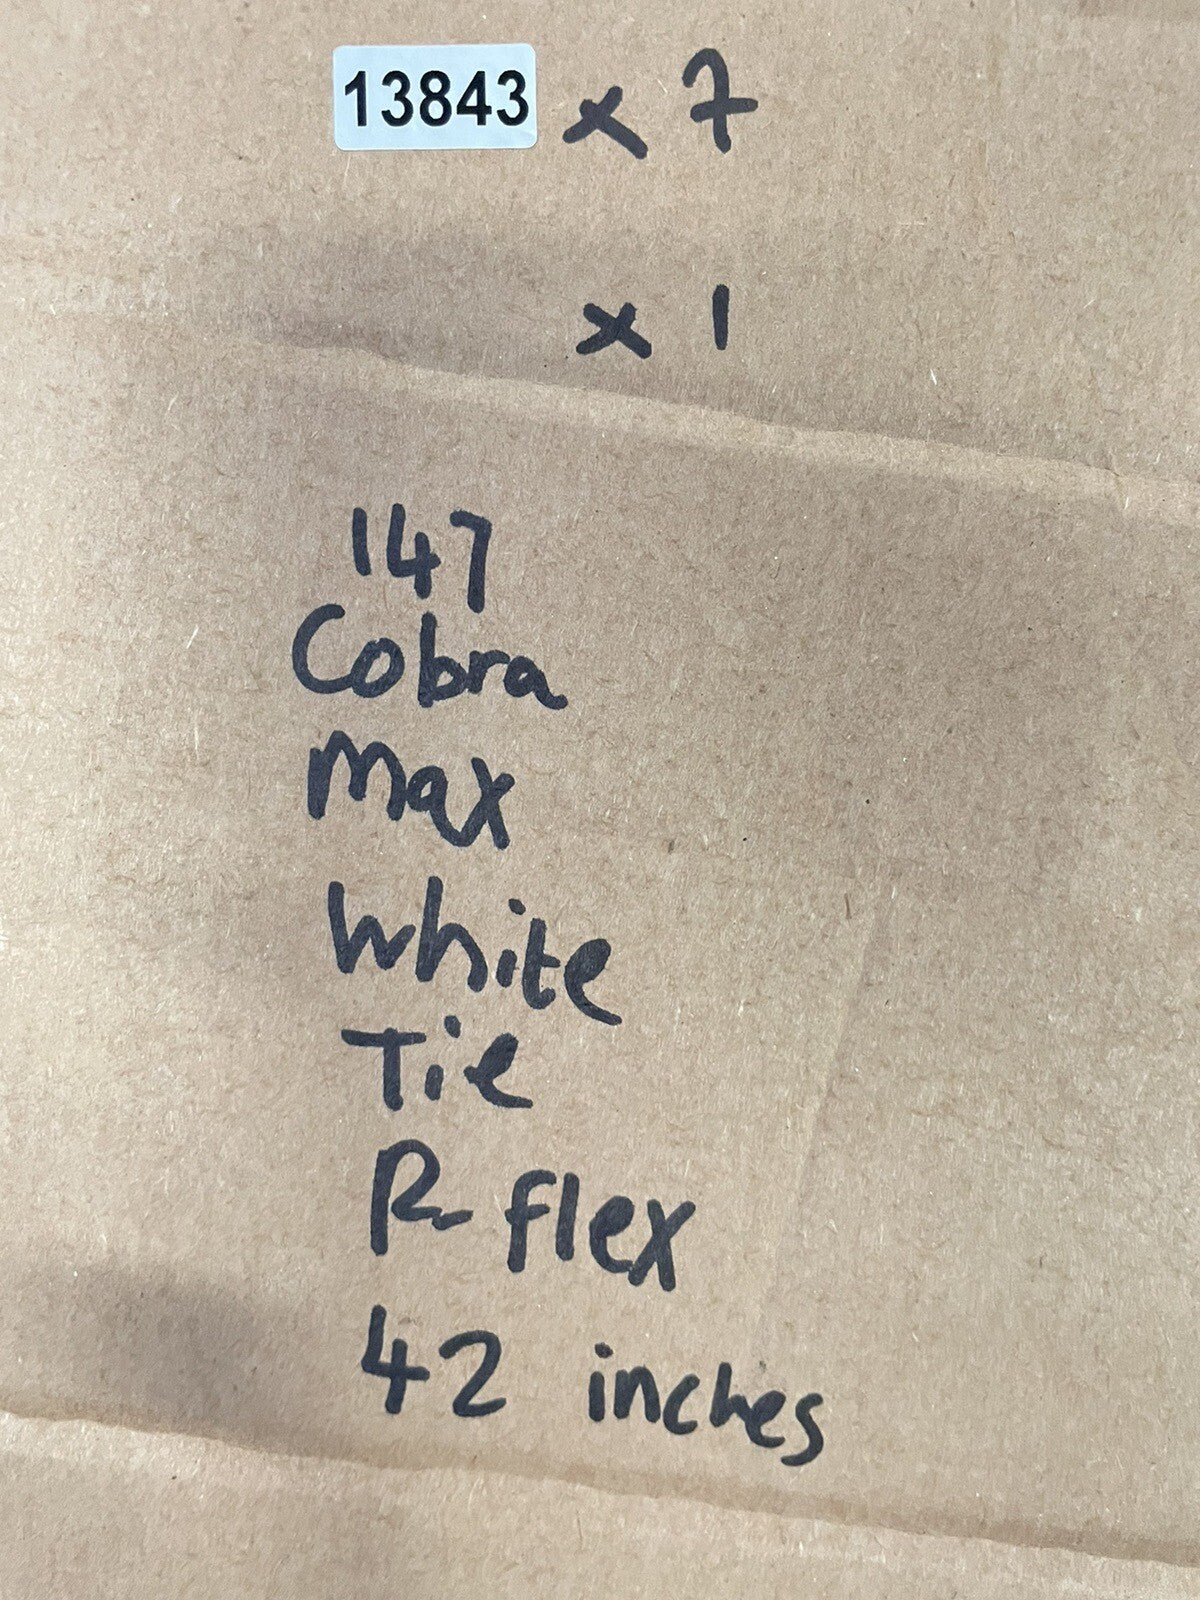 13843 x 7
x 1
147
Cobra
Max
White
Tie
R-flex
42 inches